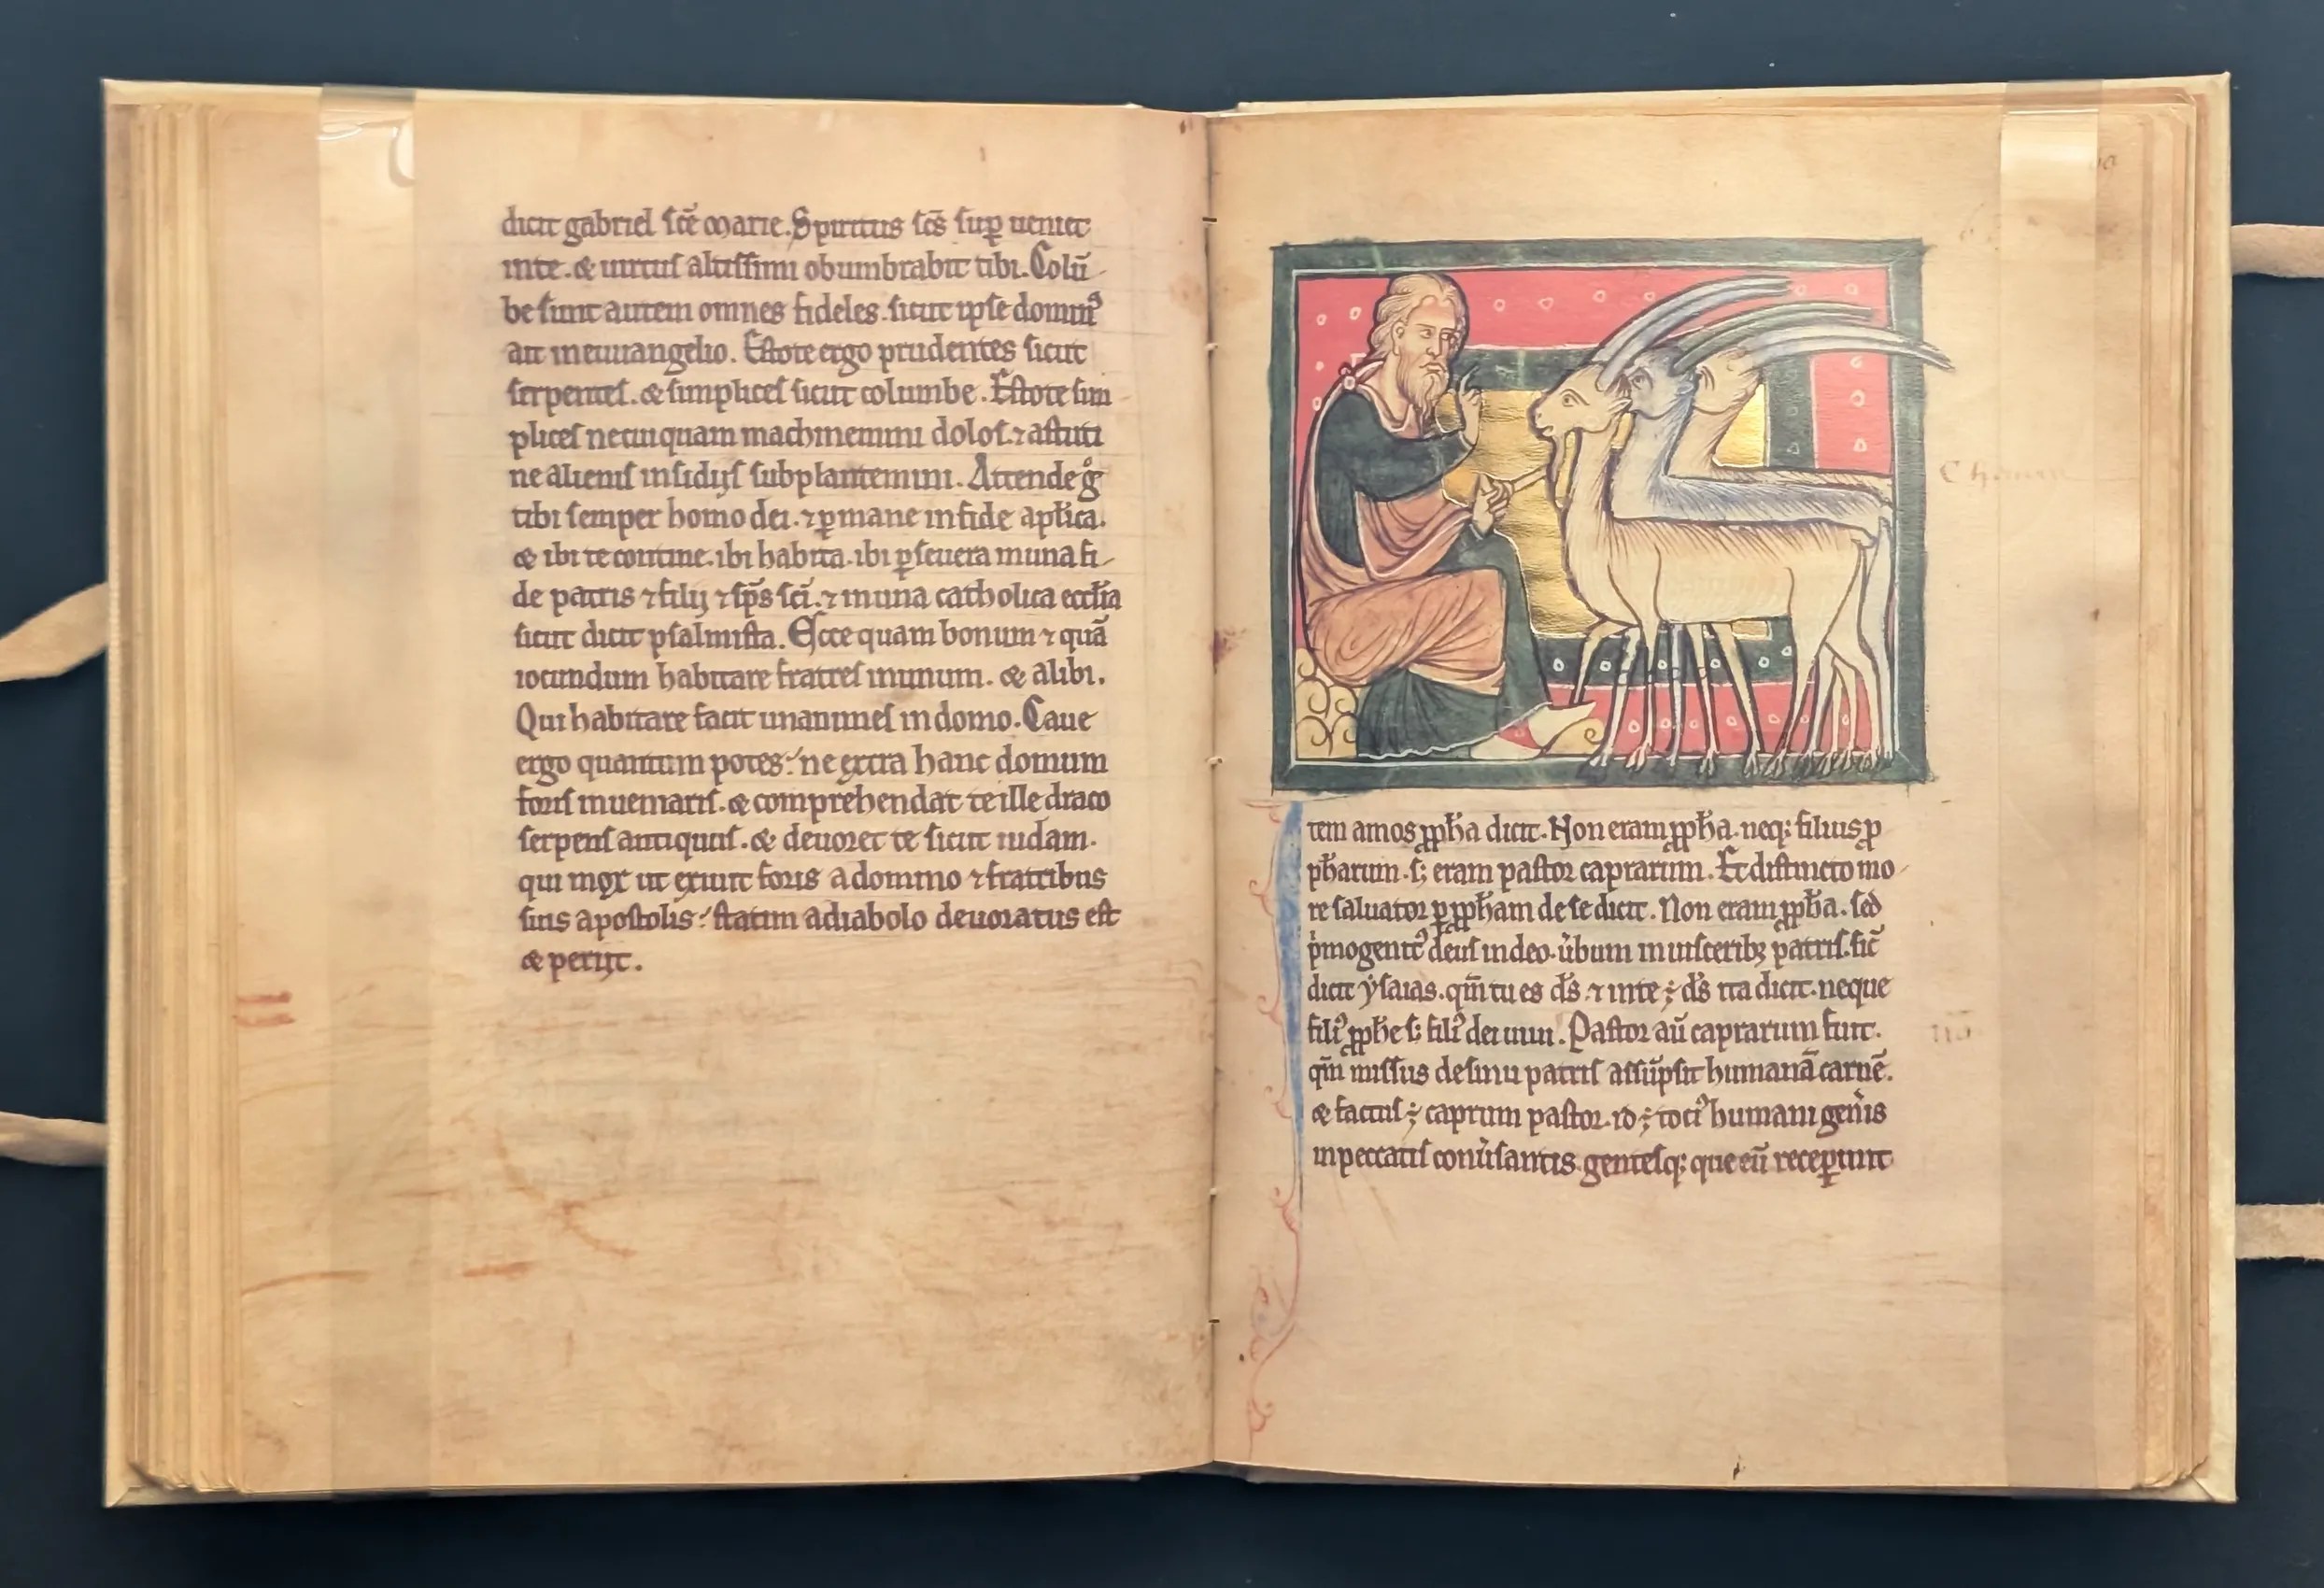 dicit gabriel sc̄e marie. Spiritus sc̄s sup̱ ueniet
inte. & uirtus altissimi obumbrabit tibi. Colū-
be sunt autem omnes fideles. sicut ipse domin᾿
ait ineuuangelio. Estote ergo prudentes sicut
serpentes. & simplices sicut columbe. Estote sim-
plices necuiquam machinemini dolos. ⁊ astuti
ne alienis insidijs subplantemini. Attende gͦ
tibi semper homo dei. ⁊ p̱mane in fide apl̄ica.
& ibi te contine. ibi habita. ibi p̱seuera in una fi-
de patris ⁊ filij ⁊ sp̄s sc̄i. ⁊ in una catholica eccl̄ia
sicut dicit psalmista. Ecce quam bonum ⁊ quā
iocundum habitare fratres inunum. & alibi.
Qui habitare facit unanimes in domo. Caue
ergo quantum potes: ne extra hanc domum
foris inueniaris. & comprehendat te ille draco
serpens antiquus. & deuoret te sicut iudam.
qui mox ut exiuit foris a domino ⁊ fratribus
suis apostolis: statim adiabolo deuoratus est
& perijt.
tem amos ꝓph̄a dicit. Non eram ꝓph̄a. neq; filius ꝓ
ph̄arum. s; eram pastor caprarum. Et distincto mo-
re saluator p̱ ꝓph̄am de se dicit. Non eram ꝓph̄a. sed
pͥmogenit᾿ deus indeo. u̇bum inuisceribꝫ patris. sic̄
dicit ẏsaias. qm̄ tu es d̄s. ⁊ inte ÷ d̄s ita dicit. neque
fili᾿ ꝓph̄e s; fili᾿ dei uiui. Pastor aū caprarum fuit.
qm̄ missus desinu patris assūpsit humanā carnē.
& factus ÷ caprum pastor. id ÷ toci᾿ humani gen̄is
inpeccatis conu̇santis. gentesq; que eū recep̱unt